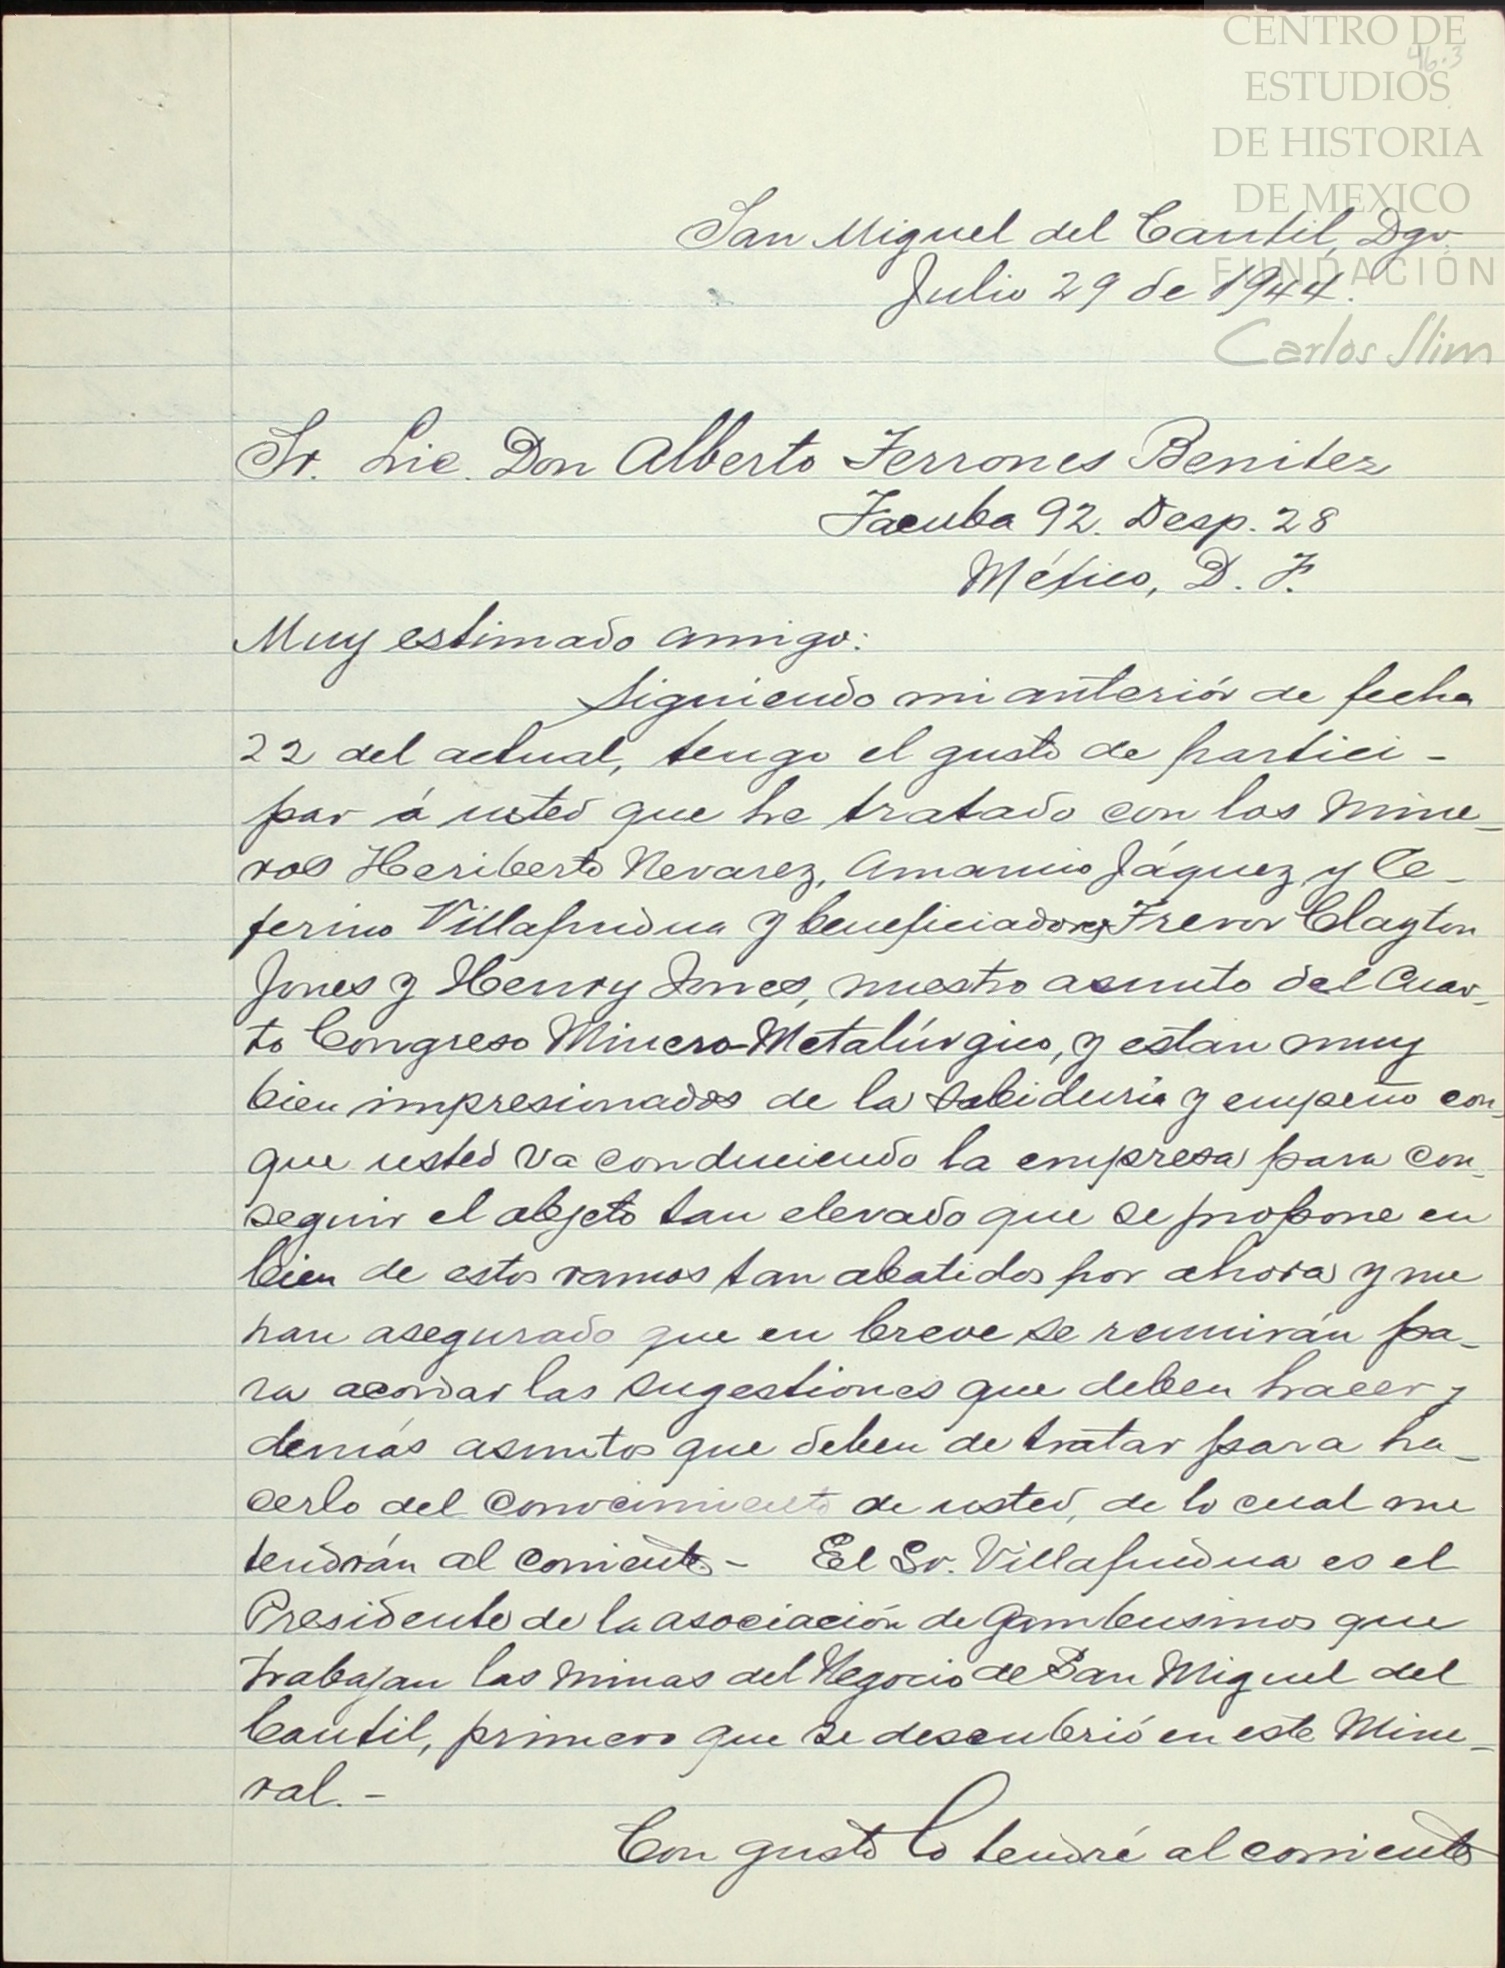 CENTRO DE
46.3
ESTUDIOS
DE HISTORIA
DE MEXICO
FUNDACIÓN
Carlos Slim
San Miguel del Cantil, Dgo.
Julio 29 de 1944.
Sr. Lic. Don Alberto Terrones Benitez
Tacuba 92. Desp. 28
México, D. F.
Muy estimado amigo:
Siguiendo mi anteriór de fecha
22 del actual, tengo el gusto de partici-
par á usted que he tratado con los mine-
ros Heriberto Nevarez, Amancio Jáquez y Ce-
ferino Villafudua y beneficiadores Trevor Clayton
Jones y Henry Jones, nuestro asunto del Cuar-
to Congreso Minero-Metalúrgico, y estan muy
bien impresionados de la sabiduria y empeño con
que usted va conduciendo la empresa para con-
seguir el objeto tan elevado que se propone en
bien de estos ramos tan abatidos por ahora y me
han asegurado que en breve se reunirán pa-
ra acordar las sugestiones que deben hacer y
demás asuntos que deben de tratar para ha-
cerlo del conocimiento de usted, de lo cual me
tendrán al corriente.- El Sr. Villafudua es el
Presidente de la asociación de Gambusinos que
trabajan las minas del Negocio de San Miguel del
Cantil, primero que se descubrió en este Mine-
ral.-
Con gusto lo tendré al corriente